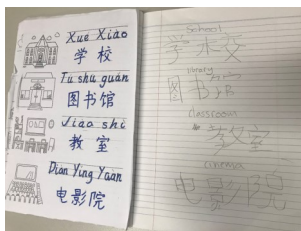 Xue Xiao
学校
Tu shu guan
图书馆
Jiao shi
教室
Dian Ying Yuan
电影院
School
学校
library
图书馆
classroom
教室
cinema
电影院